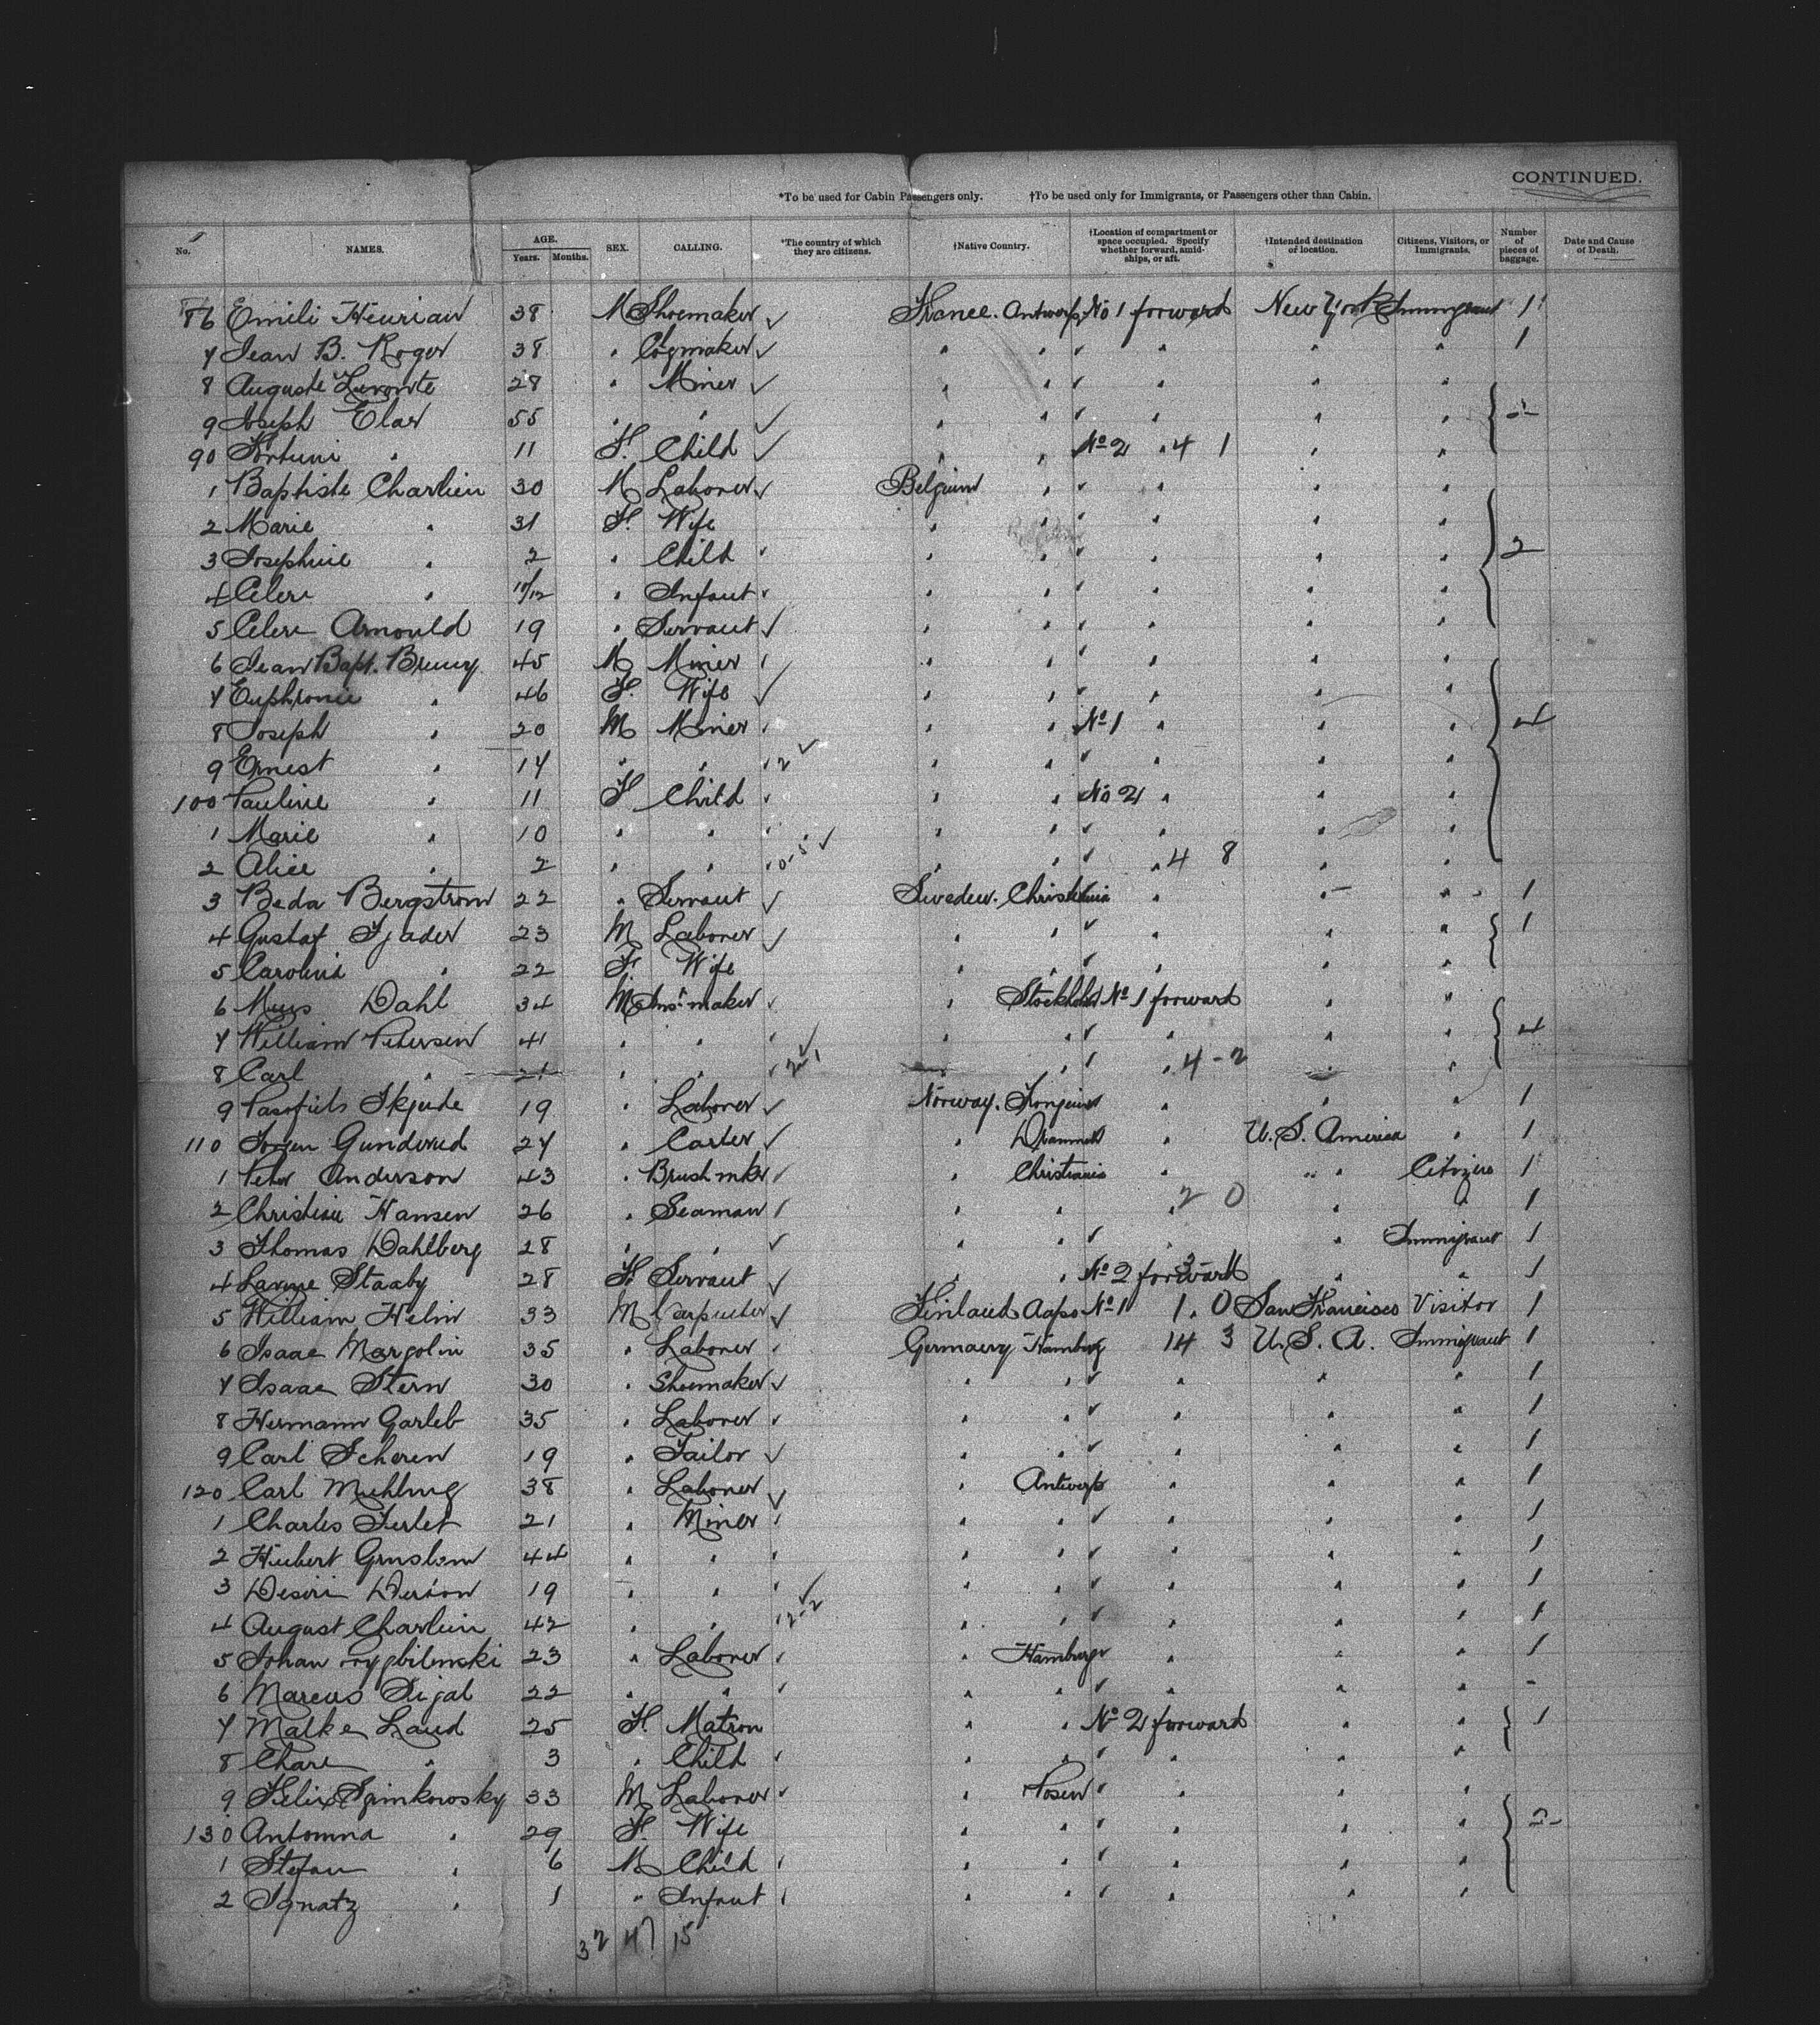 CONTINUED.
*To be used for Cabin Passengers only. †To be used only for Immigrants, or Passengers other than Cabin.
No. NAMES. AGE. Years. Months. SEX. CALLING. *The country of which they are citizens. †Native Country. †Location of compartment or space occupied. Specify whether forward, amidships, or aft. †Intended destination or location. Citizens, Visitors, or Immigrants. Number of pieces of baggage. Date and Cause of Death.
86 Emili Heurian 38 M Shoemaker France. Antwerp No 1 forward New York Immigrant 1
7 Jean B. Roger 38 " " " " " " " 1
8 Auguste 28 " Miner " " " " " "
9 Joseph Elar 55 " " " " " " " "
90 " 11 F. Child " " No 2 " 4 1 " "
1 Baptiste Charlien 30 M Laborer Belgium " " " " "
2 Marie " 31 F. Wife " " " " " "
3 Josephine " 2 " Child " " " " " " 2
4 " 11/12 " Infant " " " " " "
5 Arnould 19 " Servant " " " " " "
6 Jean Bapt. 45 M Miner " " " " " "
7 Euphronie " 46 F. Wife " " " " " "
8 Joseph " 20 M Miner " " No 1 " " " 4
9 Ernest " 14 " " 2 " " " " " "
100 Pauline " 11 F Child " " No 2 " " "
1 Marie " 10 " " " " " " " "
2 Alice " 2 " " " " " " 4 8 " "
3 Beda Bergstrom 22 " Servant Sweden. Christiania " " " 1
4 Gustaf 23 M Laborer " " " " " " 1
5 Carolina " 22 F. Wife " " " " " "
6 Dahl 34 M Ins. maker " Stockholm No 1 forward " "
7 William Petersen 41 " " " " " " " " 4
8 Carl " 21 " " " " " " 4-2 " "
9 Skjude 19 " Laborer Norway. " " " 1
110 24 " Carter " Drammen " U. S. America " 1
1 Peter Anderson 43 " Brush mkr " Christiania " " " Citizen 1
2 Christian Hansen 26 " Seaman " " " 2 0 " " 1
3 Thomas Dahlberg 28 " " " " " " " Immigrant 1
4 Staaby 28 F. Servant " " No 2 forward " " 1
5 William Helin 33 M Carpenter Finland No 1 1. 0 San Francisco Visitor 1
6 Isaac Margolin 35 " Laborer Germany Hamburg 14 3 U. S. A. Immigrant 1
7 Isaac Stern 30 " Shoemaker " " " " " " 1
8 Hermann Garleb 35 " Laborer " " " " " " 1
9 Carl Scheren 19 " Tailor " " " " " " 1
120 Carl 38 " Laborer " Antwerp " " " 1
1 Charles 21 " Miner " " " " " " 1
2 Hubert 44 " " " " " " " " 1
3 Desiri 19 " " " " " " " " 1
4 August Charlien 42 " " " " " " " " 1
5 Johan 23 " Laborer " Hamburg " " " 1
6 Marcus Sigal 22 " " " " " " " " -
7 Malke Laud 25 F. Matron " " No 2 forward " " 1
8 " 3 " Child " " " " " "
9 Felix 33 M Laborer " Posen " " " "
130 Antonina " 29 F. Wife " " " " " " 2
1 Stefan " 6 M Child " " " " " "
2 Ignatz " 1 " Infant " " " " " "
32 47 15